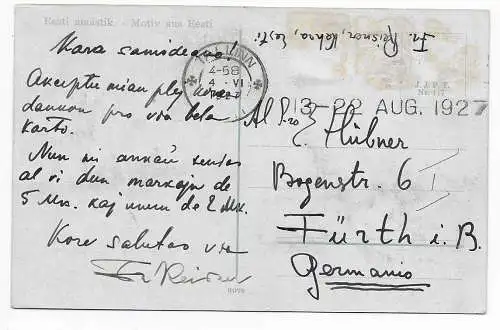 Eesti maastik - Motiv aus Eesti
Fr. Reisner, Kehra, Eesti
Kara samideano!
Akceptu mian plej koran
dankon pro via bela
karto.
Nun mi ankaŭ sendas
al vi du markojn de
5 Mk. kaj unu de 2 Mk.
Kore salutas via
Fr Reisner
TALLINN
4-58
4 VI
1927
13-22 AUG. 1927
Al S-ro E. Hübner
Bogenstr. 6
Fürth i. B.
Germanio
J. J. P. T.